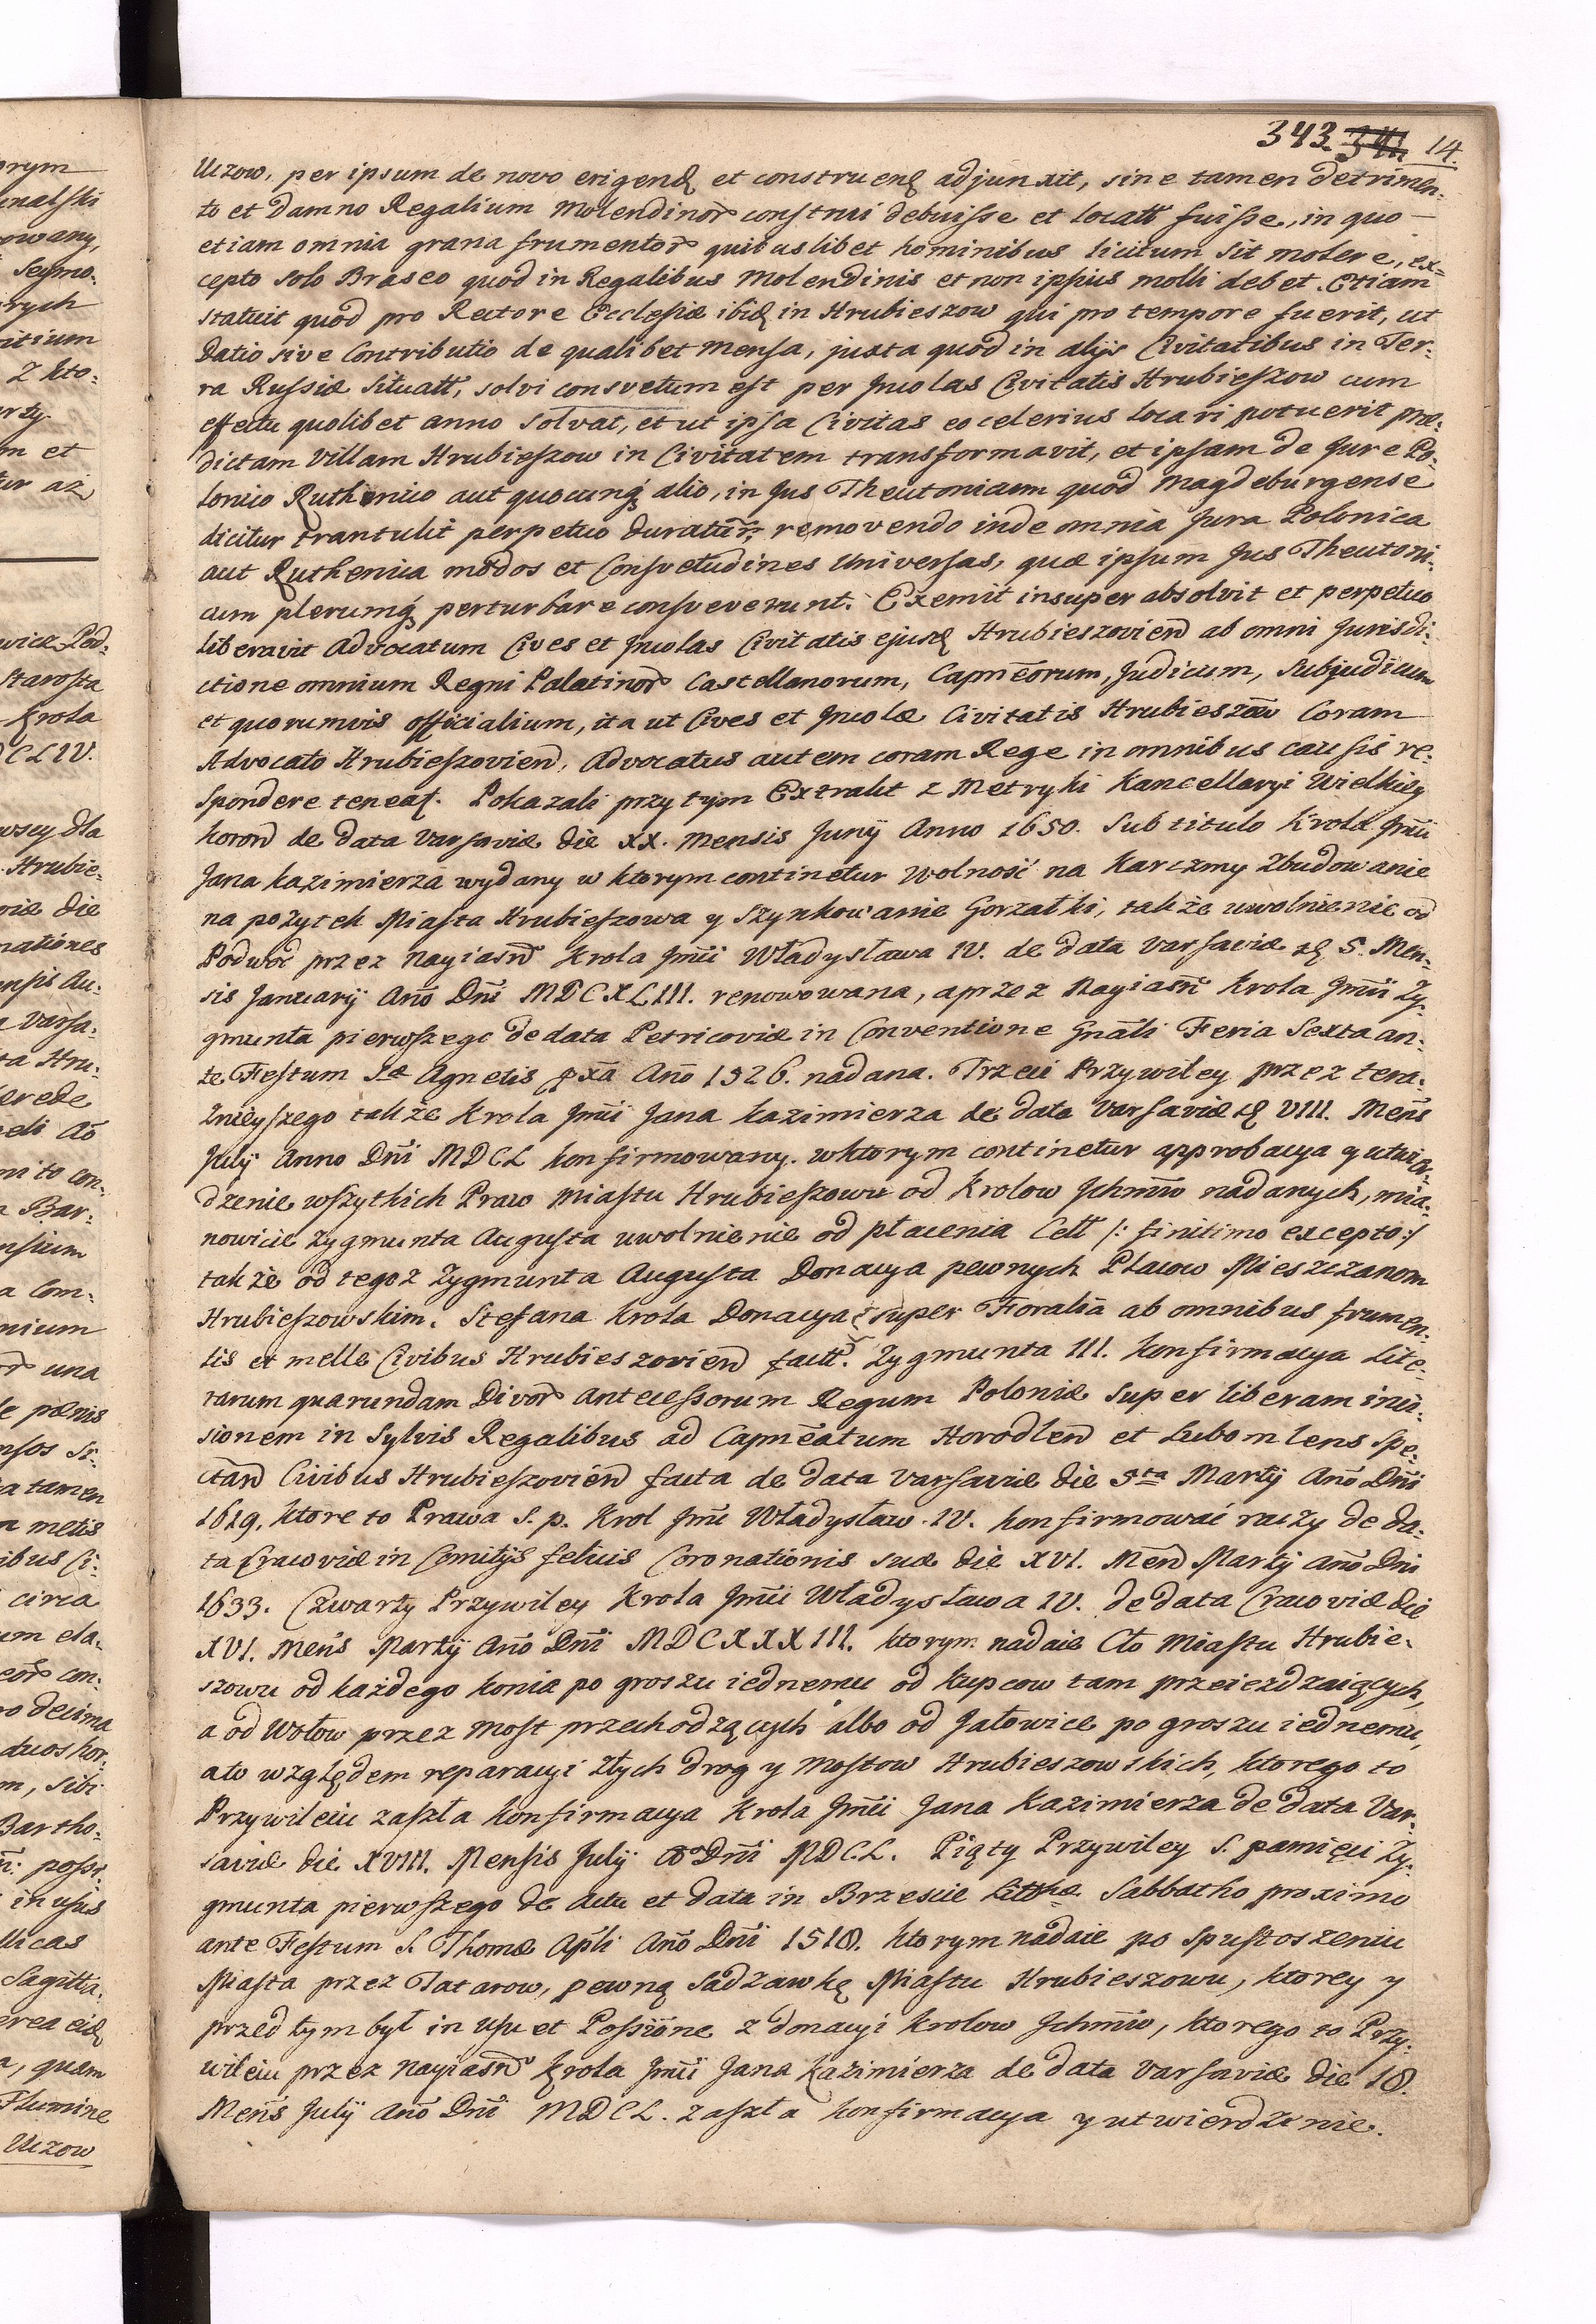 343. 341 14.
Uczow, per ipsum de novo erigend et construend adjunxit, sine tamen detrimen-
to et Damno Regalium Molendinor construi debuisse et locatt fuisse, in quo
etiam omnia grana frumentor quibuslibet hominibus licitum sit molere, ex-
cepto solo Braseo quod in Regalibus Molendinis et non ipsius molli debet. Etiam
statuit quod pro Rectore Ecclesiæ ibid in Hrubieszow qui pro tempore fuerit, ut
Datio sive Contributio de qualibet Mensa, juxta quod in alijs Civitatibus in Ter-
ra Russiæ Situatt, solvi consvetum est per Incolas Civitatis Hrubieszow cum
effectu quolibet anno solvat, et ut ipsa Civitas eo celerius locari potuerit præ-
dictam Villam Hrubieszow in Civitatem transformavit, et ipsam de Jure Po-
lonico Ruthenico aut quocunq alio, in Jus Theutonicum quod Magdeburgense
dicitur trantulit perpetuo Duratur, removendo inde omnia Jura Polonica
aut Ruthenica modos et Consvetudines Universas, quæ ipsum Jus Theutoni-
cum plerumq perturbare consveverunt. Exemit insuper absolvit et perpetuo
liberavit Advocatum Cives et Incolas Civitatis ejusd Hrubieszoviend ab omni Jurisdi-
ctione omnium Regni Palatinor Castellanorum, Capneorum, Judicum, Subjudicum
et quorumvis officialium, ita ut Cives et Incolæ Civitatis Hrubieszow Coram
Advocato Hrubieszovien, Advocatus autem coram Rege in omnibus causis re-
spondere teneat. Pokazali przy tym Extrakt z Metryki Kancellaryi Wielkiey
koron de data Varsaviæ die XX. Mensis Junij Anno 1650. Sub titulo Krola Jmci
Jana Kazimierza wydany w ktorym continetur Wolność na Karczmy Zbudowanie
na pożytek Miasta Hrubieszowa y Szynkowanie Gorzałki, także uwolnienie od
Podwod przez Nayiasn Krola Jmci Władysława IV. de data Varsaviæ d 5. Men-
sis January Ano Dni MDCXLIII. renowowana, a przez Nayiasn Krola Jmci Zy-
gmunta pierwszego de data Petricoviæ in Conventione Gnali Feria Sexta an-
te Festum Sæ Agnetis pxa Ano 1526. nadana. Trzeci Przywiley przez tera-
znieyszego także Krola Jmci Jana Kazimierza de data Varsaviæ d VIII. Mens
July Anno Dni MDCL konfirmowany. w ktorym continetur approbacya y utwier-
dzenie wszytkich Praw Miastu Hrubieszowu od Krolow Ichmw nadanych, mia-
nowicie Zygmunta Augusta uwolnienie od płacenia Cełł /: finitimo excepto :/
także od tegoż Zygmunta Augusta Donacya pewnych Placow Mieszczanom
Hrubieszowskim. Stefana Krola Donacya super Foralia ab omnibus frumen-
tis et melle Civibus Hrubieszovien factt. Zygmunta III. konfirmacya Lite-
rarum quarundam Divor Antecessorum Regum Poloniæ Super liberam inci-
sionem in Sylvis Regalibus ad Capneatum Horodlen et Lubomlens spe-
ctan Civibus Hrubieszovien facta de data Varsaviæ die 5ta Martij Ano Dni
1619. ktore to Prawa S. p. Krol Jmc Władysław IV. konfirmować raczy de da-
ta Cracoviæ in Comitijs felicis Coronationis suæ die XVI. Men Martij Ano Dni
1633. Czwarty Przywiley Krola Jmci Władysława IV. de data Cracoviæ die
XVI. Mens Martij Ano Dni MDCXXXIII. ktorym nadaie Cło Miastu Hrubie-
szowu od każdego konia po groszu iednemu od kupcow tam przeiezdzaiących,
a od Wołow przez Most przechodzących albo od Jałowice po groszu iednemu,
a to względem reparacyi złych drog y Mostow Hrubieszowskich, ktorego to
Przywileiu zaszła konfirmacya Krola Jmci Jana Kazimierza de data Var-
saviæ die XVIII. Mensis July Ao Dni MDCL. Piąty Przywiley S. pamięci Zy-
gmunta pierwszego de Actu et data in Brzescie Litthæ Sabbatho proximo
ante Festum S. Thomæ Apli Ano Dni 1518. ktorym nadaie po spustoszeniu
Miasta przez Tatarow, pewną Sadzawkę Miastu Hrubieszowu, ktorey y
przed tym był in usu et Possione z donacyi Krolow Ichmw, ktorego to Przy-
wileiu przez Nayiasn Krola Jmci Jana Kazimierza de data Varsaviæ die 18.
Mens July Ano Dni MDCL. zaszła konfirmacya y utwierdzenie.